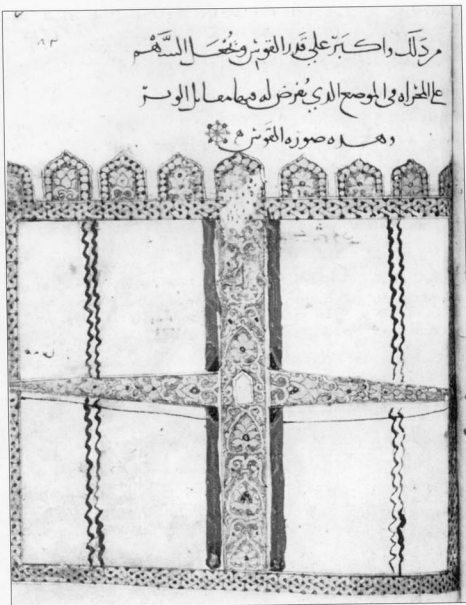 ٨٣
من ذلك واكبر علي قدر القوس ونجعل السهم
على المجراه في الموضع الذي يفرض له فيها مقابل الوتر
وهذه صوره القوس